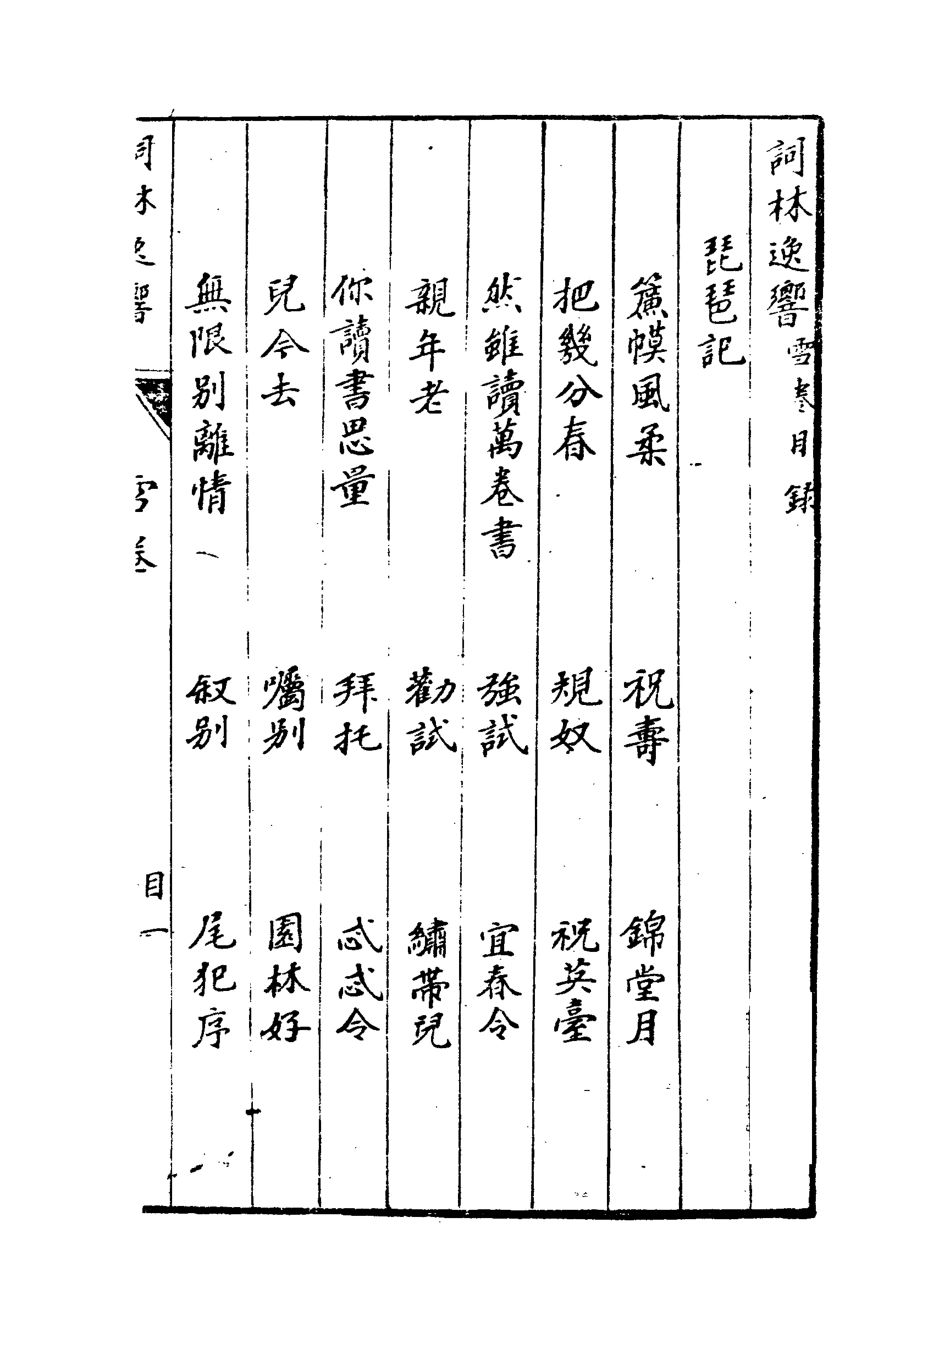 詞林逸響雪卷目錄
琵琶記
簾幙風柔 祝壽 錦堂月
把幾分春 規奴 祝英臺
然雖讀萬卷書 強試 宜春令
親年老 勸試 繡帶兒
你讀書思量 拜托 忒忒令
兒今去 囑别 園林好
無限别離情 叙别 尾犯序
詞林逸響 雪卷 目一